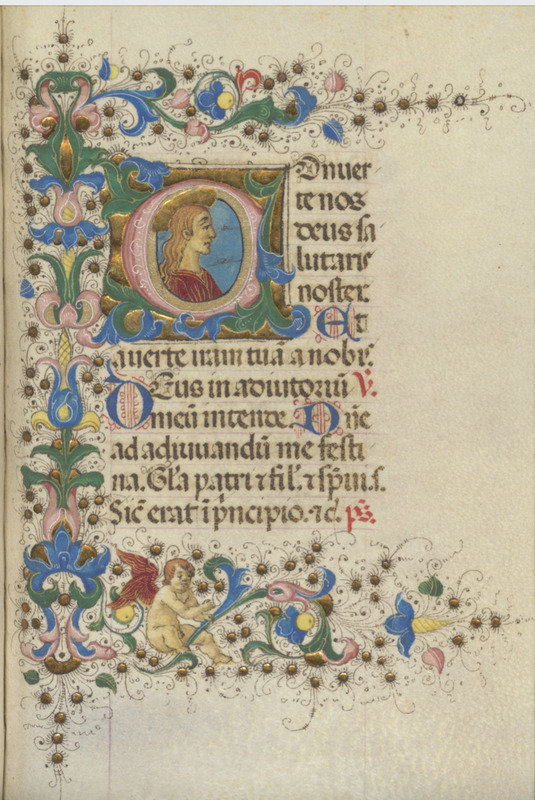 Conver
te nos
deus sa
lutaris
noster.
Et
auerte iram tuã a nobis.
Deus in adiutoriũ V.
meũ intende. Dñe
ad adiuuandũ me festi
na. Gl̃a patri ⁊ fil̃. ⁊ sp̃ui.s.
Sic̃ erat ĩ pñcipio. ⁊c̃. p̃s.